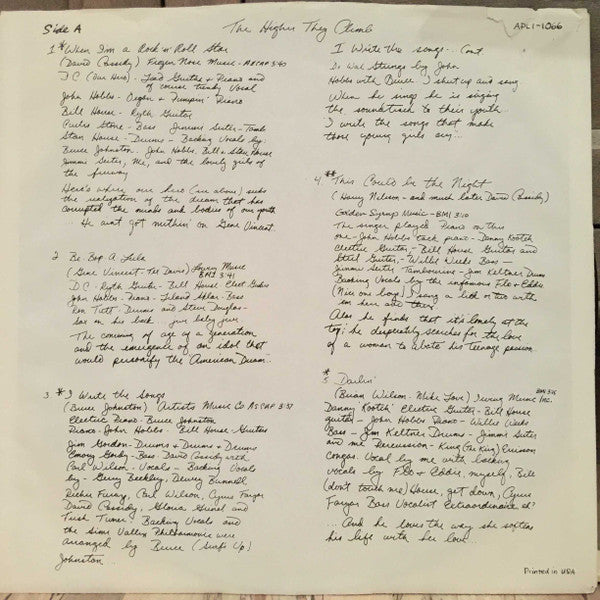 Side A
The Higher They Climb
APL1-1066
1 * When I'm a Rock 'n' Roll Star
(David Cassidy) Frozen Nose Music - ASCAP 3:40
D.C. (Our Hero) - Lead Guitar & Piano and
of course trendy Vocal
John Hobbs - Organ & Pumpin' Piano
Bill House - Ryth Guitar
Curtis Stone - Bass Jimmie Seiter - Tamb.
Stan House - Drums - Backing Vocals by:
Bruce Johnston, John Hobbs, Bill & Stan House
Jimmie Seiter, Me, and the lovely girls of
the freeway
Here's where our hero (see above) seeks
the realization of the dream that has
corrupted the minds and bodies of our youth
... He ain't got nothin' on Gene Vincent.
2 Be Bop A Lula
(Gene Vincent Tex Davis) Lowery Music
BMI 3:41
D.C. - Ryth Guitar - Bill House - Elect Guitar
John Hobbs - Piano - Leland Sklar - Bass
Ron Tutt - Drums and Steve Douglas -
Sax on his back ... jive baby jive
The coming of age of a generation
and the emergence of an idol that
would personify the "American Dream"..
3. * I Write the Songs
(Bruce Johnston) Artists Music Co ASCAP 3:57
Electric Piano - Bruce Johnston
Piano - John Hobbs - Bill House - Guitars
Jim Gordon - Drums & Drums & Drums
Emory Gordy - Bass David Cassidy with
Carl Wilson - Vocals - Backing Vocals
by - Gerry Beckley, Dewey Bunnell
Richie Furay, Carl Wilson, Cyrus Faryar
David Cassidy, Gloria Grinel and
Tish Turner - Backing Vocals and
the Simi Valley Philharmonic were
arranged by Bruce (Surfs Up)
Johnston...
I Write the songs ... Cont.
Do Wal Strings by John
Hobbs with Bruce. I shut up and sang
When he sings he is singing
the soundtrack to their youth..
I write the songs that make
those young girls cry...
4. ** This Could be the Night
(Harry Nelson - and much later David Cassidy)
Golden Syrup Music - BMI 3:10
The singer played Piano on this
one - John Hobbs tack piano - Danny Kootch
Electric Guitar - Bill House Guitar and
Steel Guitar - Willie Weeks Bass -
Jimmie Seiter Tambourine - Jim Keltner Drums
Backing Vocals by the infamous Flo & Eddie
(Nice one boys) I sang a lick or two with
em here and there
Also he finds that it's lonely at the
top: he desperately searches for the love
of a woman to abate his teenage passion
* 5 Darlin'
(Brian Wilson - Mike Love) Irving Music Inc.
Danny Kootch Electric Guitar - Bill House
guitar - John Hobbs Piano - Willie Weeks
Bass - Jim Keltner Drums - Jimmie Seiter
and me Percussion - King
Congas. Vocal by me with backing
vocals by Flo & Eddie, myself, Bill
(don't touch me) House, get down, Cyrus
Faryar Bass Vocalist Extraordinaire
... And he loves the way she softens
his life with her love
Printed in USA